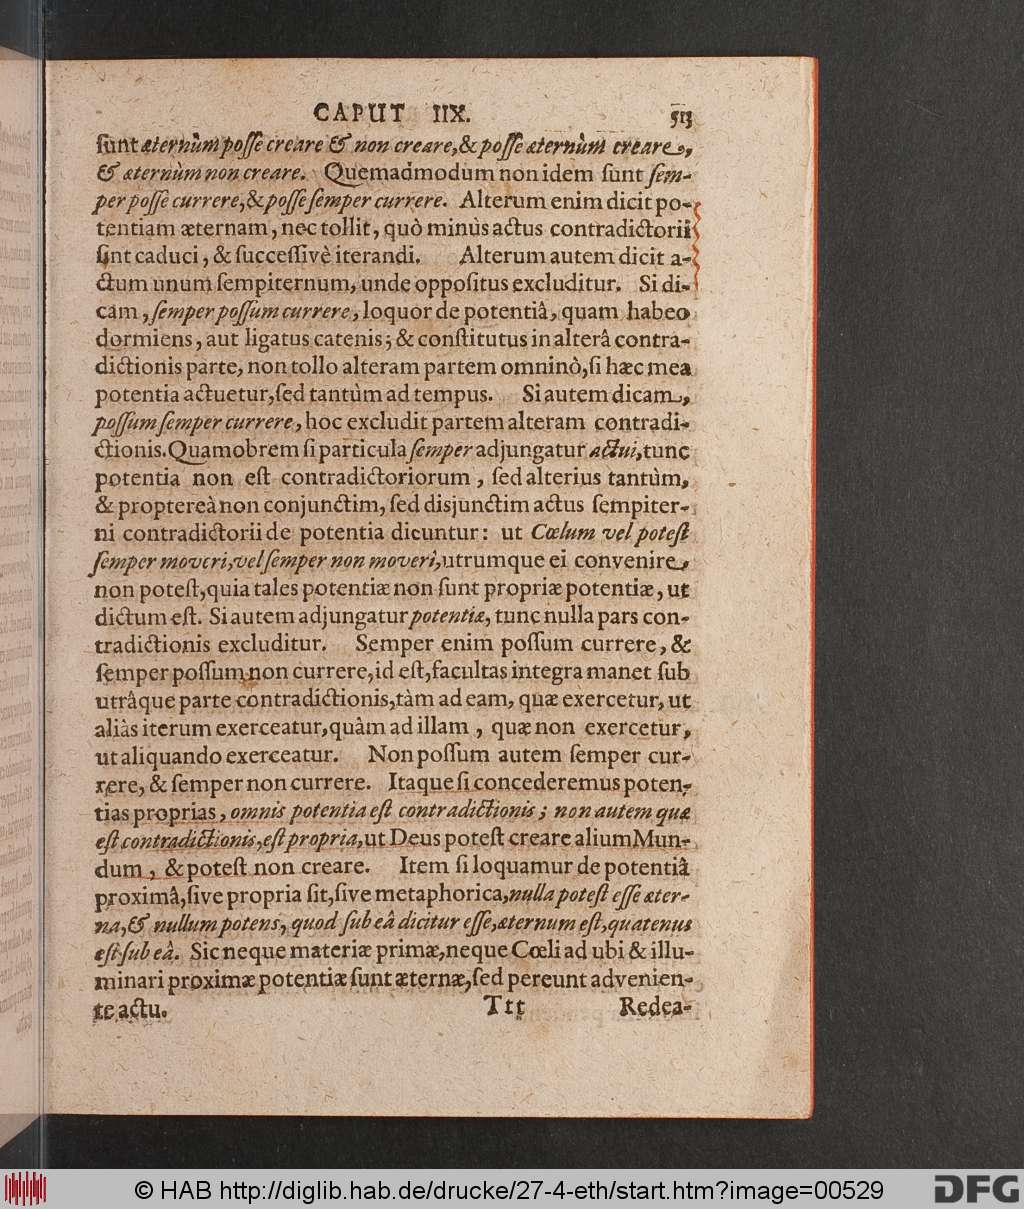 CAPUT IIX. 513
sunt æternùm posse creare & non creare, & posse æternùm creare,
& æternùm non creare. Quemadmodum non idem sunt sem-
per posse currere, & posse semper currere. Alterum enim dicit po-
tentiam æternam, nec tollit, quò minùs actus contradictorii
sint caduci, & successivè iterandi. Alterum autem dicit a-
ctum unum sempiternum, unde oppositus excluditur. Si di-
cam, semper possum currere, loquor de potentiâ, quam habeo
dormiens, aut ligatus catenis; & constitutus in alterâ contra-
dictionis parte, non tollo alteram partem omninò, si hæc mea
potentia actuetur, sed tantùm ad tempus. Si autem dicam,
possum semper currere, hoc excludit partem alteram contradi-
ctionis. Quamobrem si particula semper adjungatur actui, tunc
potentia non est contradictoriorum, sed alterius tantùm,
& proptereà non conjunctim, sed disjunctim actus sempiter-
ni contradictorii de potentia dicuntur: ut Cœlum vel potest
semper moveri, vel semper non moveri, utrumque ei convenire,
non potest, quia tales potentiæ non sunt propriæ potentiæ, ut
dictum est. Si autem adjungatur potentiæ, tunc nulla pars con-
tradictionis excluditur. Semper enim possum currere, &
semper possum non currere, id est, facultas integra manet sub
utrâque parte contradictionis, tàm ad eam, quæ exercetur, ut
aliàs iterum exerceatur, quàm ad illam, quæ non exercetur,
ut aliquando exerceatur. Non possum autem semper cur-
rere, & semper non currere. Itaque si concederemus poten-
tias proprias, omnis potentia est contradictionis; non autem quæ
est contradictionis, est propria, ut Deus potest creare alium Mun-
dum, & potest non creare. Item si loquamur de potentiâ
proximâ, sive propria sit, sive metaphorica, nulla potest esse æter-
na, & nullum potens, quod sub eâ dicitur esse, æternum est, quatenus
est sub eâ. Sic neque materiæ primæ, neque Cœli ad ubi & illu-
minari proximæ potentiæ sunt æternæ, sed pereunt advenien-
te actu. Ttt Redea-
© HAB http://diglib.hab.de/drucke/27-4-eth/start.htm?image=00529 DFG